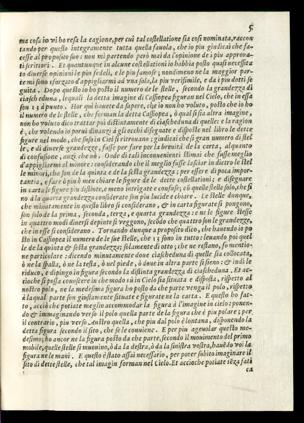 5
ma cosa io vi ho resa la cagione, per cui tal costellatione sia così nominata, raccon
tando per questo integramente tutta quella favola, che in più giudicai che fa-
cesse al proposito suo: non mi partendo però mai da l'opinione de i più approva-
ti scrittori. Et quantunque in alcune costellationi io habbia posto quasi necessita
to diverse opinioni le più fedeli, e le più famose; nondimeno ne la maggior par-
te mi sono sforzato d'appigliarmi ad una sola, la più verisimile, e da i più dotti se
guita. Dopo questo io ho posto il numero de le stelle, secondo la grandezza di
ciascheduna, segnata la detta imagine di Cassiopea figurar nel Cielo, che in esse
son 13 a punto. Hor qui havete da sapere, che io non ho voluto, posto che io ho
il numero de le stelle, che forman la detta Cassiopea, ò qual si sia altra imagine,
non ho voluto dico trattar più distintamente di ciascheduna di quelle: e la ragion
è, che volendo io porvi dinanzi à gli occhi disegnate e disposte nel libro le dette
figure nel modo, che stan in Ciel si ritrovano; giudicai che sì gran numero di stel
le, e di diverse grandezze, fusse per fare per la brevità de la carta, alquanto
di confusione, anzi che nò. Onde di tali inconvenienti stimai che fusse meglio
d'appigliarmi al minore: considerando che il meglio fusse lasciar in dietro le stel
le minori, che son de la quinta e de la sesta grandezza; per essere di poca impor-
tantia, e fare quasi men chiare le figure de le dette costellationi; e disegnare
in carta le figure più distinte, e meno intrigate e confuse; cò quelle stelle sole, che fi
no à la quarta grandezza considerate son più lucide e chiare. Le stelle dunque,
che minutamente in questo libro si considerano, & in carta figurate si pongono,
son solo de la prima, seconda, terza, e quarta grandezza: e ne le figure stesse
in quattro modi diversi depinte si veggono, secondo che quattro son le grandezze,
che in esse si considerano. Tornando dunque a proposito dico, che havendo io po
sto in Cassiopea il numero de le sue stelle, che 13 sono in tutto: levando poi quel
le de la quinta & sesta grandezza; solamente di otto, che ne restano, fo mentio-
ne particolare: dicendo minutamente dove ciascheduna di quelle sia collocata,
ò ne la spalla, ò ne la testa, ò nel piede, ò dove in altra parte si sieno: & indi le
riduco, e dipingo in figura secondo la distinta grandezza di ciascheduna. Et ac-
cioche si possa considerare in che modo stà in Cielo sia situata e disposta, rispetto al
nostro polo, ne la medesima figura ho posto da che parte venga il polo, rispetto
à la qual parte son giustamente situate e figurate ne la carta. E questo ho fat-
to, accioche potiate meglio accommodar la figura à l'imagine in cielo: ponen-
do & immaginando verso il polo quella parte de la figura che è più polare; per
il contrario, più verso Austro quella, che più dal polo è lontana, disponendo la
detta figura secondo il sito, che se le conviene. E per più agevolar questo mo-
desimo; ho ancor ne la figura posto da che parte, secondo il movimento del primo
mobile, quelle stelle si muovino, ò da la destra, ò da la sinistra vostra, havendo voi la
figura ne le mani. E questo è stato assai necessario, per poter subito imaginare il
sito di dette stelle, che tal imagin forman nel Cielo. Et accioche potiate sẽza fati
ca